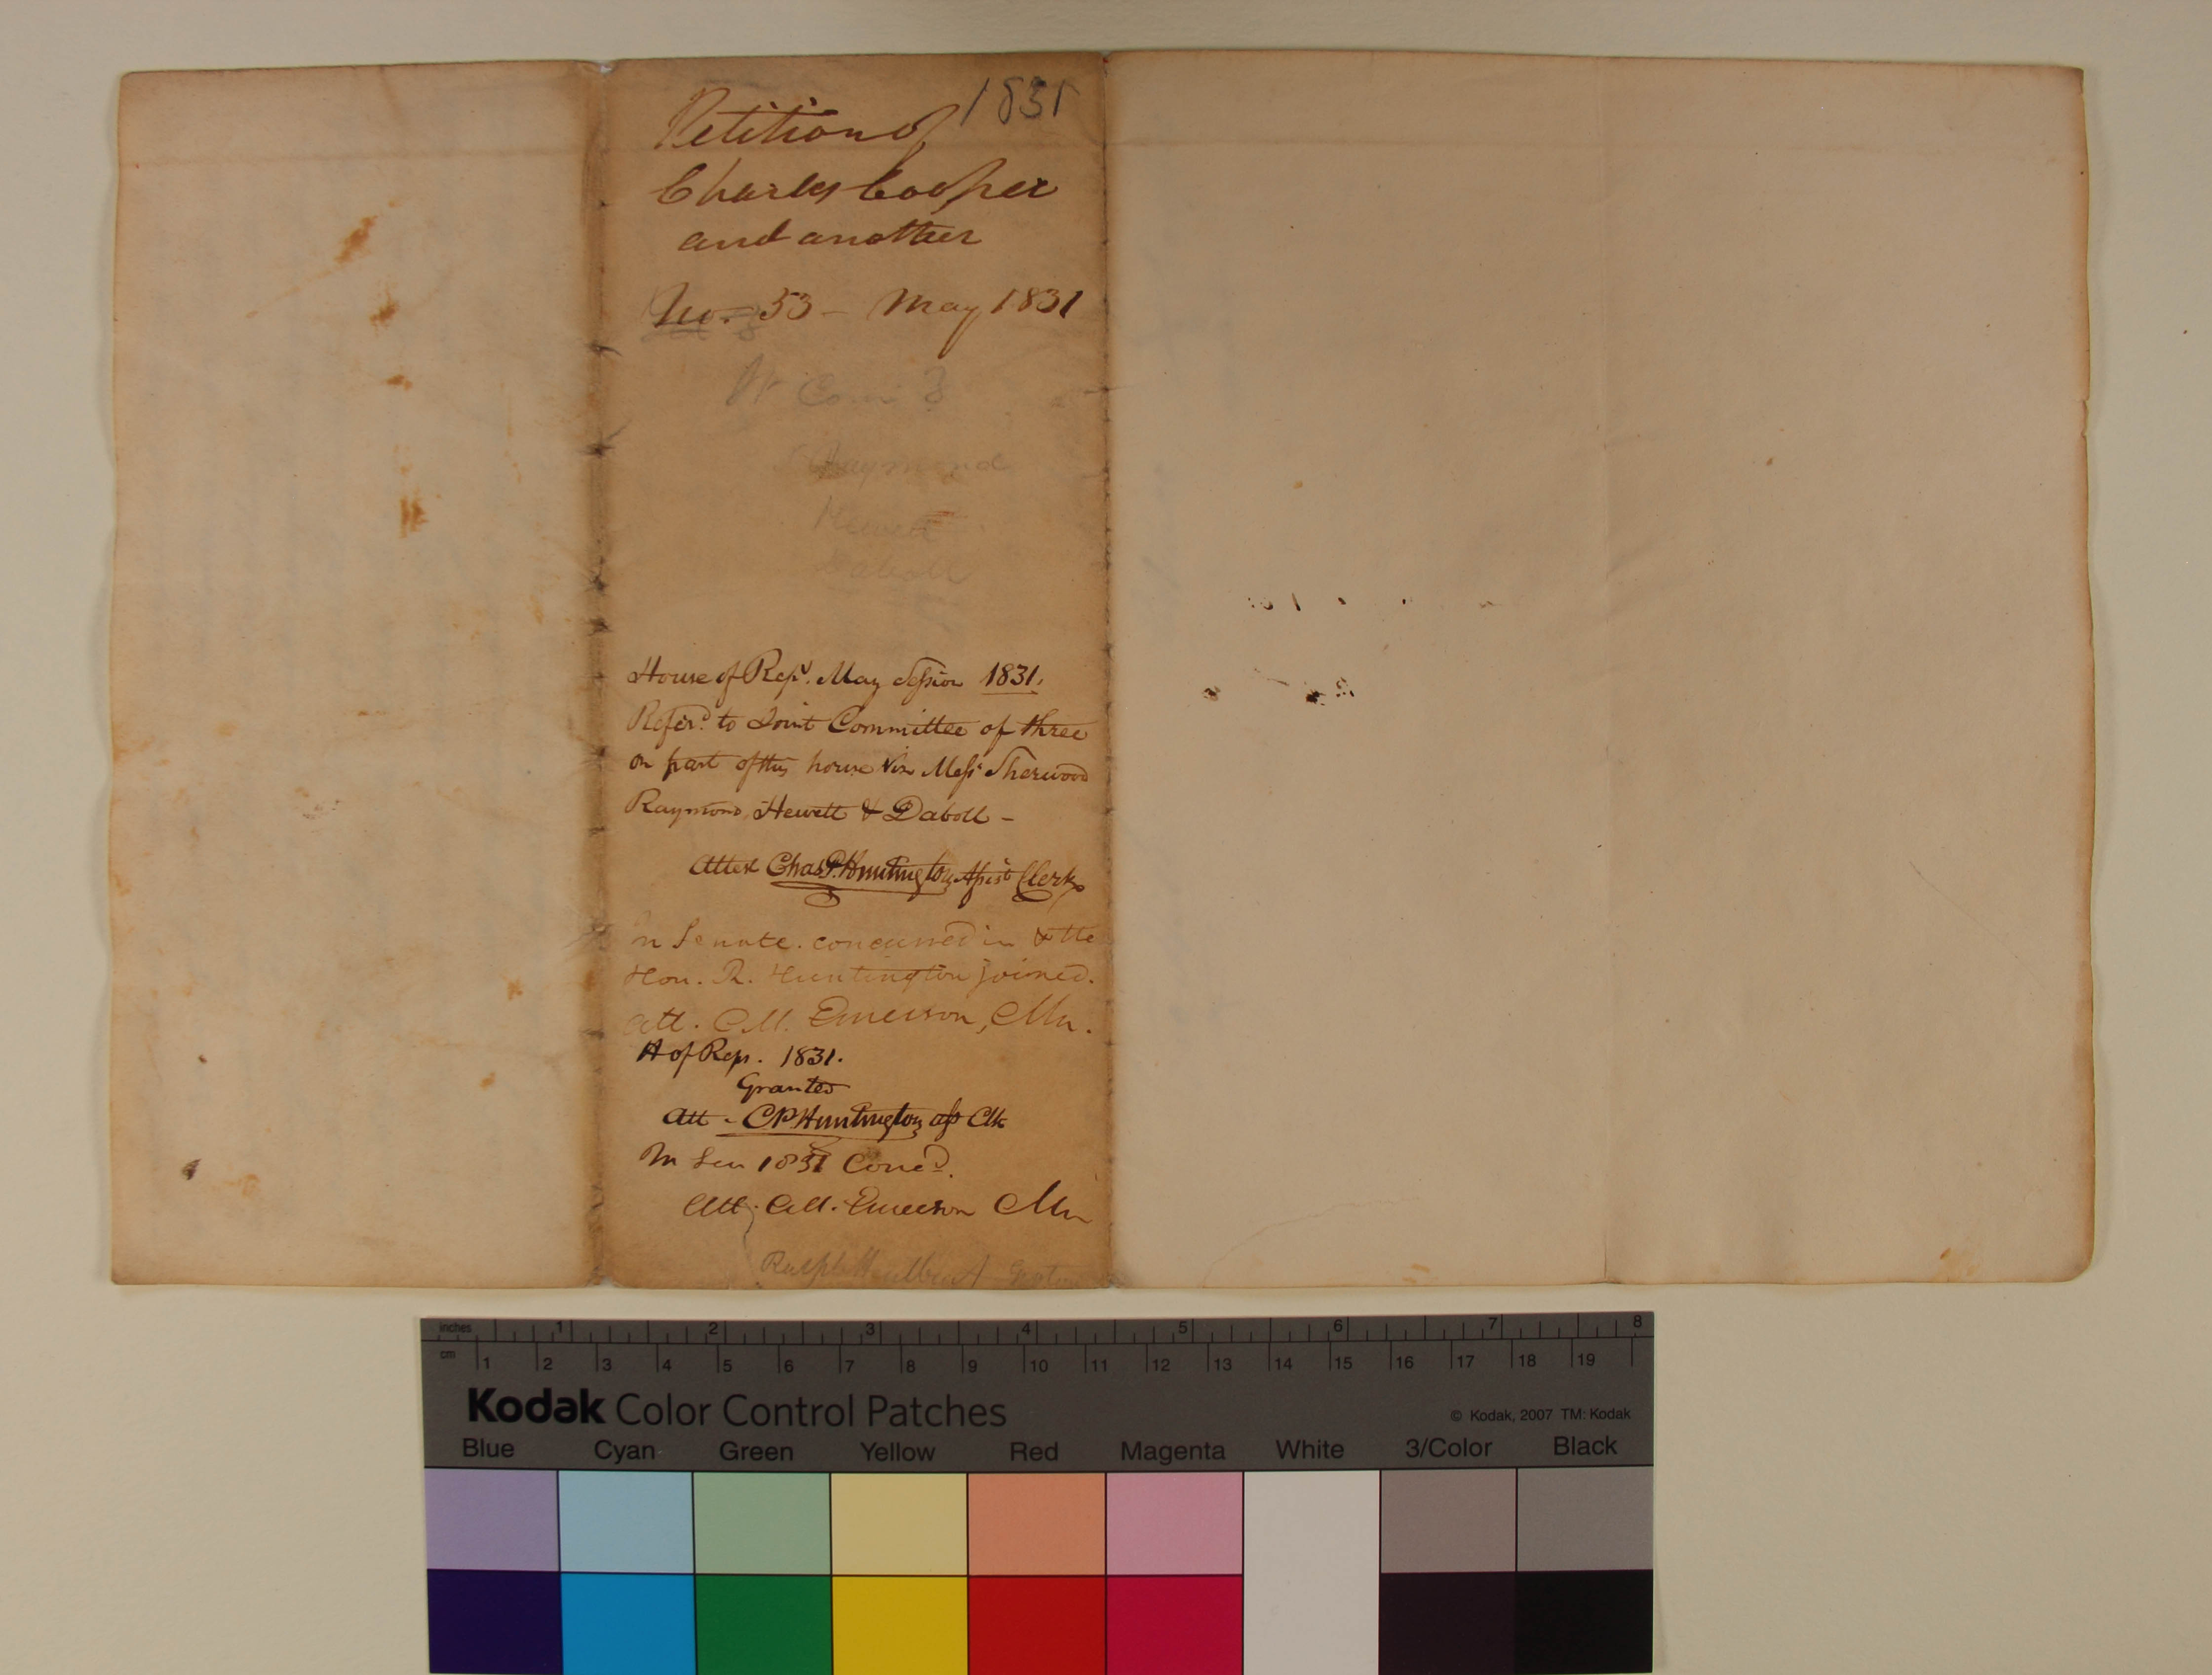 1831
Petition of
Charles Cooper
and another
No. 53 - May 1831
Jt Com 3
Raymond
Hewett
Daboll
House of Reps. May Session 1831.
Referd. to Joint Committee of three
on part of this house viz Messrs Sherwood
Raymond, Hewett & Daboll -
Attest Chas. P. Huntington Assist Clerk
In Senate. concurred in & the
Hon. R. Huntington joined.
Att. C.M. Emerson, Clk.
H of Reps. 1831.
Granted
Att - C.P. Huntington ass Clk
In Sen 1831 Conc'd.
Att. C.M. Emerson Clk
Ralph Hurlbutt Groton
inches 1 2 3 4 5 6 7 8
cm 1 2 3 4 5 6 7 8 9 10 11 12 13 14 15 16 17 18 19
Kodak Color Control Patches
© Kodak, 2007 TM: Kodak
Blue Cyan Green Yellow Red Magenta White 3/Color Black